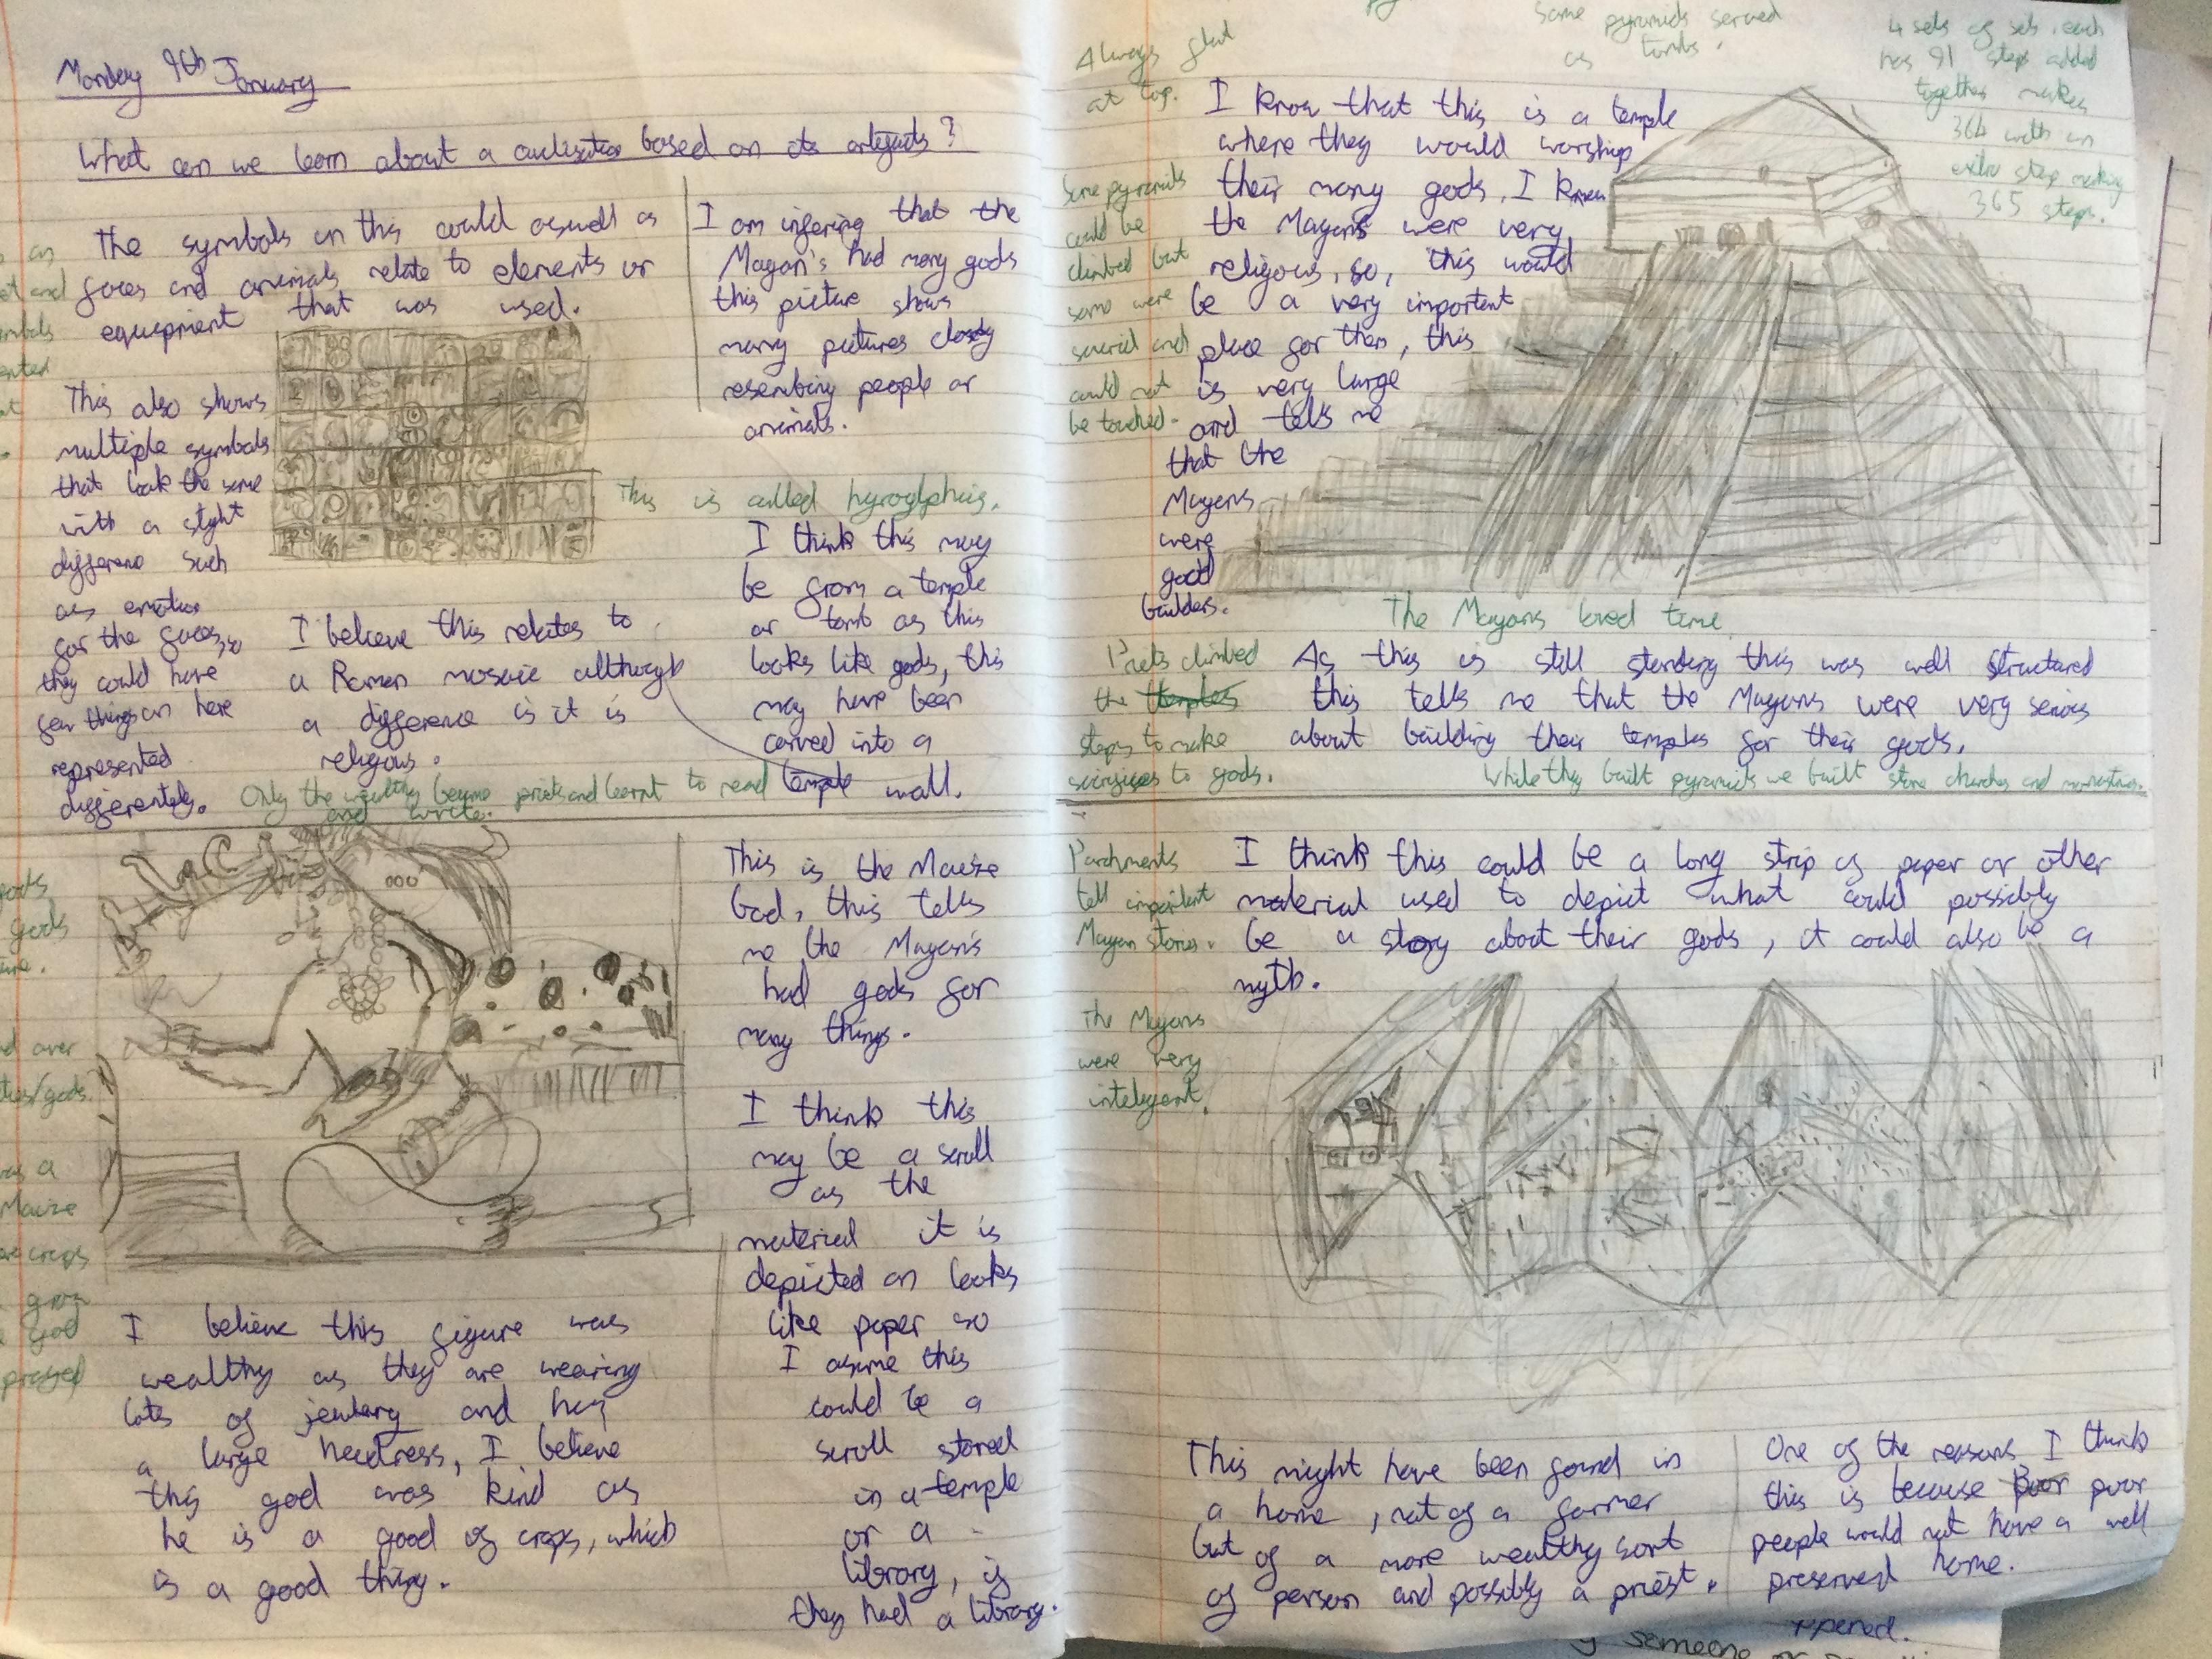 Monday 9th January
What can we learn about a civilisation based on its artefacts?
The symbols in this could aswell as
faces and animals relate to elements or
equepment that was used.
I am infering that the
Mayan's had many gods
this picture shows
many pictures closely
resembing people or
animals.
This also shows
multiple symbols
that look the same
with a slght
differenc such
as emotion
for the faces, so
they could have
few things on here
represented
differently.
This is called hyroglphics.
I think this may
be from a temple
or tomb as this
looks like gods, this
may have been
carved into a
temple wall.
I believe this relates to
a Roman mosaic allthough
a difference is it is
religous.
Only the wealthy became priests and learnt to read
and write.
This is the Maize
God, this tells
me the Mayan's
had gods for
many things.
I think this
may be a scroll
as the
material it is
depicted on looks
like paper so
I asume this
could be a
scroll stored
in a temple
or a
library, if
they had a library.
I believe this figure was
wealthy as they are wearing
lots of jewlery and has
a large headress, I believe
this god was kind as
he is a good of crops, which
is a good thing.
gods
gods
over
/gods
as a
Maize
crops
grow
god
prayed
Always flat
at top.
Some pyramids served
as tombs.
4 sets of sets, each
has 91 steps added
together makes
364 with an
extra step making
365 steps.
Some pyramids
could be
climbed but
some were
sacrid and
could not
be touched.
I know that this is a temple
where they would worship
their many gods. I know
the Mayans were very
religous, so, this would
be a very important
place for them, this
is very large
and tells me
that the
Mayans
were
good
builders.
The Mayans loved time
Priets climbed
the temples
steps to make
sacrifices to gods.
As this is still standing this was well structured
this tells me that the Mayans were very serious
about building their temples for their gods.
While they built pyramids we built stone churches and monastries.
Parchments
tell important
Mayan stories.
The Mayans
were very
inteligent.
I think this could be a long strip of paper or other
material used to depict what could possibly
be a story about their gods, it could also be a
myth.
This might have been found in
a home, not of a farmer
but of a more wealthy sort
of person and possibly a priest.
One of the reasons I think
this is because poor poor
people would not have a well
preserved home.
ppened.
someone